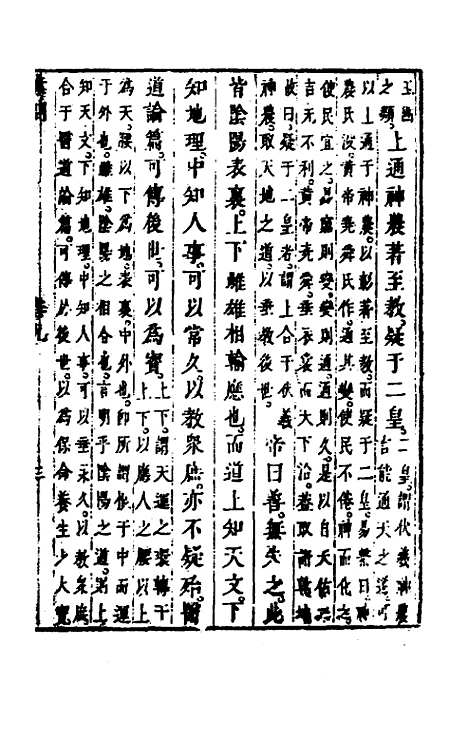 玉冊
之類。上通神農著至教。疑于二皇。二皇。謂伏羲神農
言能通天之道。可
以上通于神農。以彰著至教。而疑于二皇。易繫曰神
農氏沒。黃帝堯舜氏作。通其變。使民不倦。神而化之。
使民宜之。易窮則變。變則通。通則久。是以自天佑之。
吉无不利。黃帝堯舜。垂衣裳而天下治。蓋取諸乾坤
故曰。疑于二皇者。謂上合于伏羲
神農。取天地之道。以垂教後世。
帝曰善。無失之。此
皆陰陽表裏。上下雌雄相輸應也。而道上知天文。下
知地理。中知人事。可以常久。以教衆庶。亦不疑殆。醫
道論篇。可傳後世。可以為寶。上下。謂天運之環轉于
上下。以應人之腰以上
為天。腰以下為地。表裏。中外也。即所謂于中而運
于外也。雌雄。陰陽之相合也。言明乎陰陽之道。則上
知天文。下知地理。中知人事。可以垂永久。以教衆庶。
合于醫道論篇。可傳於後世。以為保命養生之大寶
素問
卷九
三